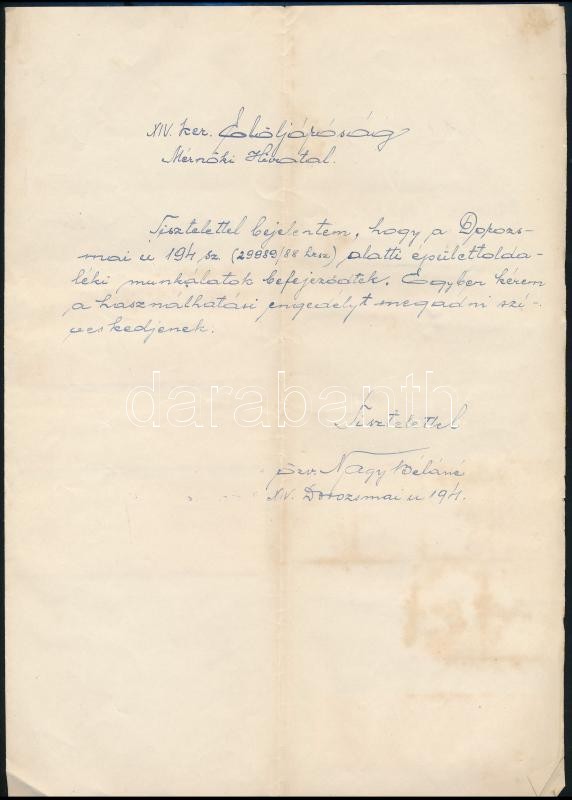 XIV. ker. Elöljáróság
Mérnöki Hivatal.
Tisztelettel bejelentem, hogy a Dorozs-
mai u 194 sz. (29989/88 hrsz), alatti épülettolda-
léki munkálatok befejeződtek. Egyben kérem
a használhatási engedélyt megadni szí-
veskedjenek.
darabanth
Tisztelettel
özv. Nagy Béláné
XIV. Dorozsmai u 194.